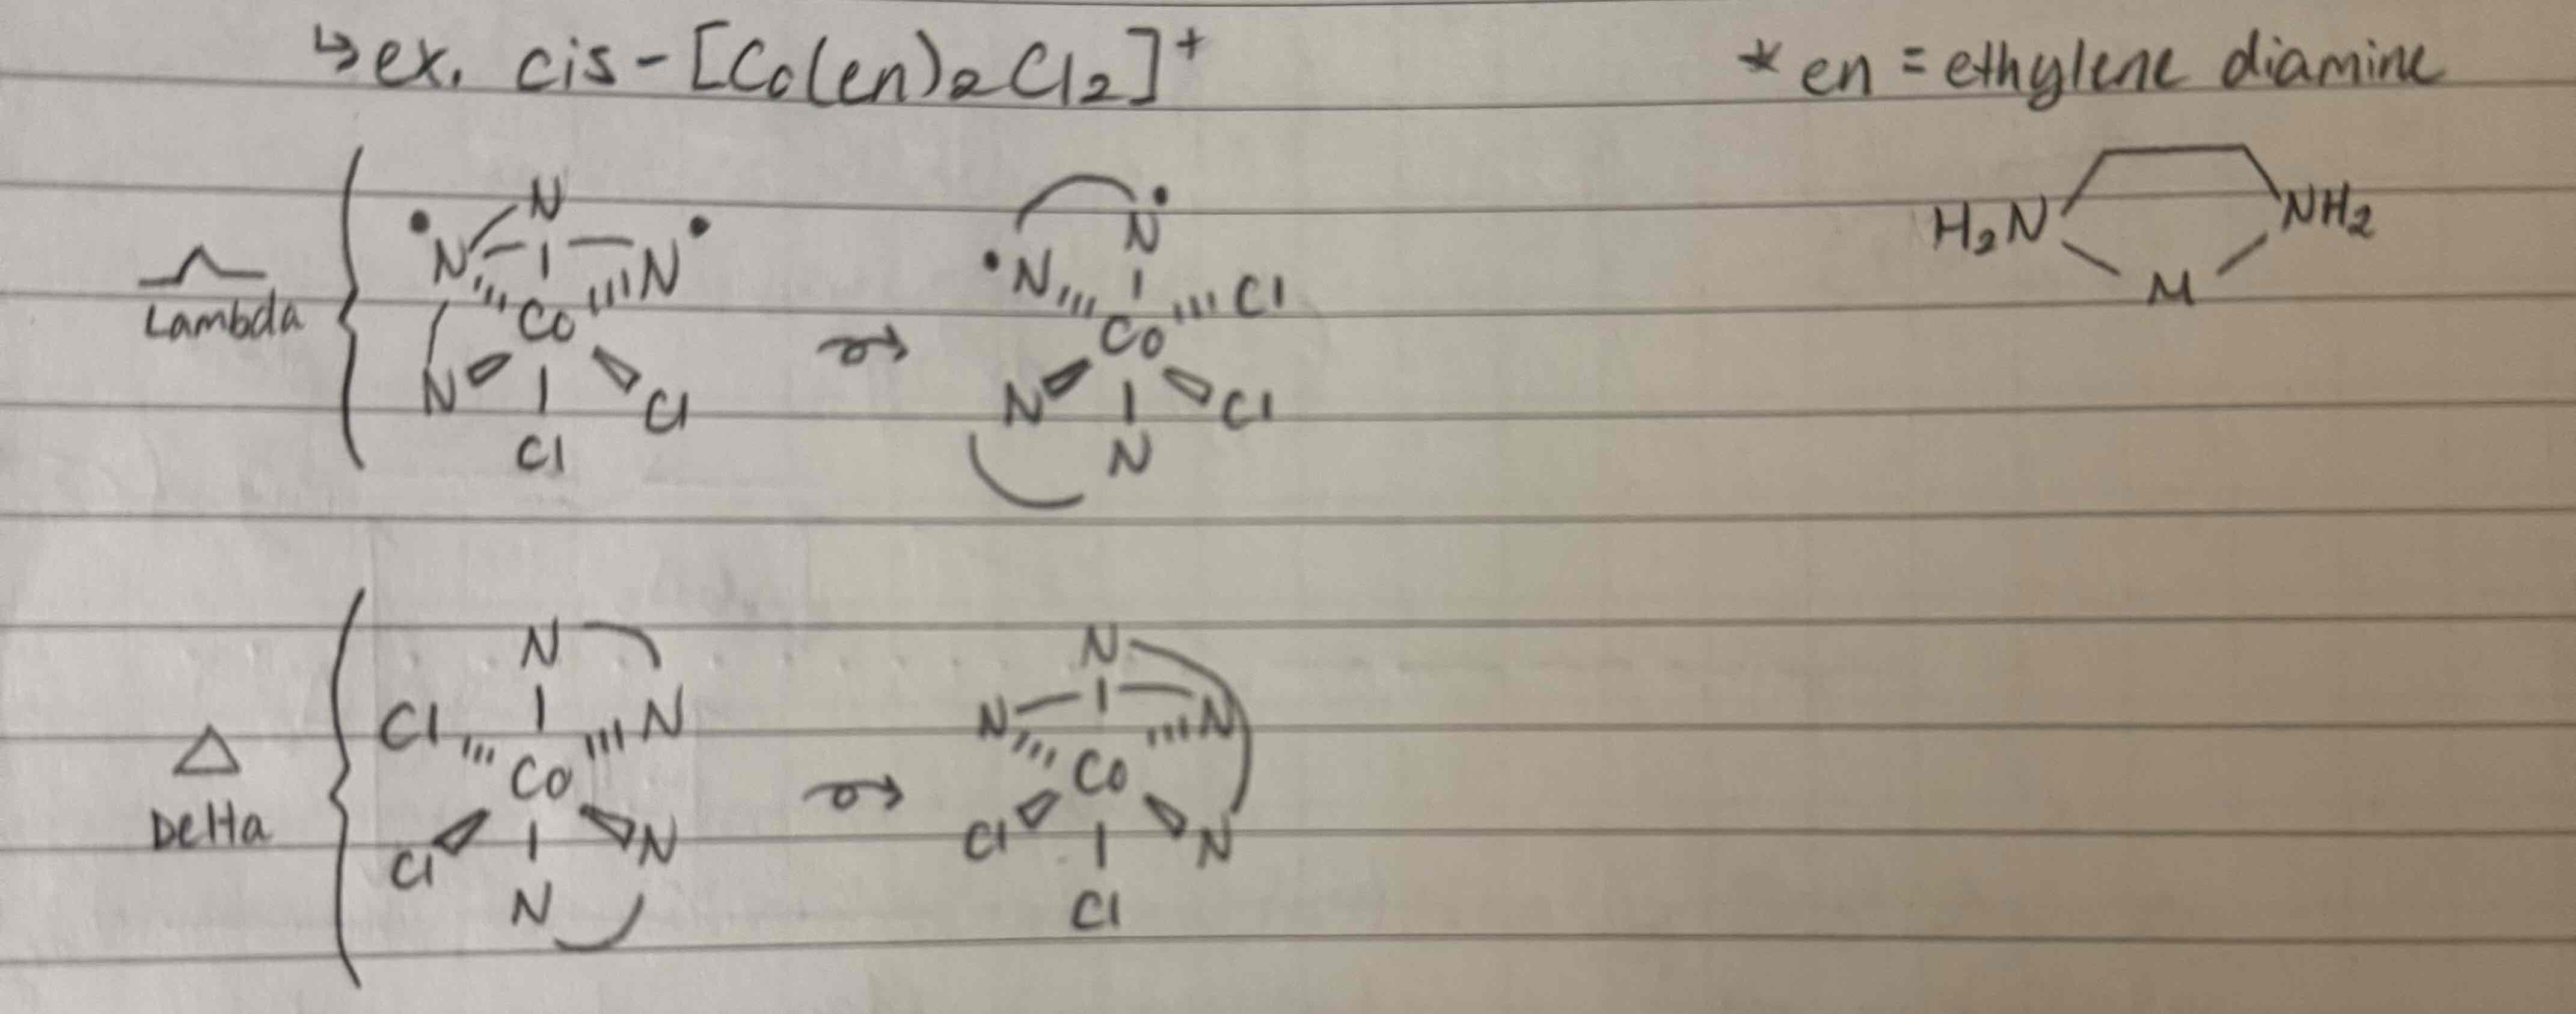 ↳ ex. cis-[Co(en)2Cl2]+ * en = ethylene diamine
H2N NH2
M
Λ
Lambda
N
N N
Co
N Cl
Cl
N
N Cl
Co
N Cl
N
Δ
Delta
N
Cl N
Co
Cl N
N
N
N N
Co
Cl N
Cl